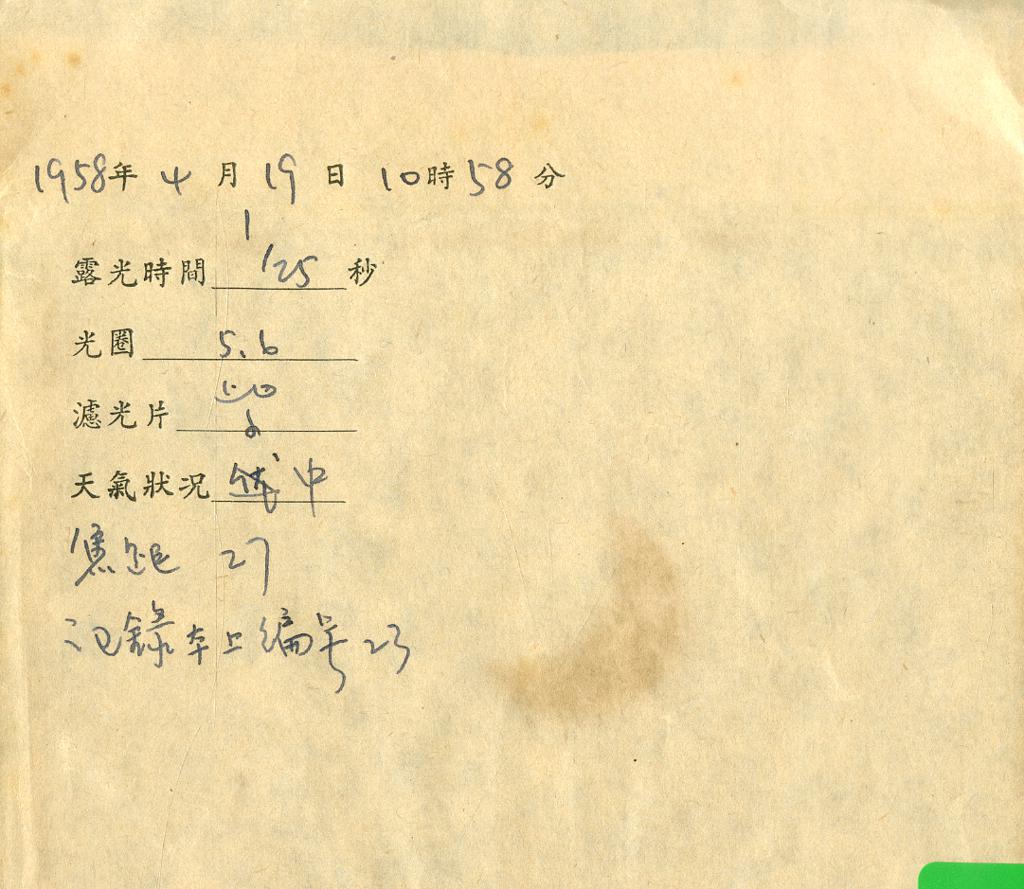 1958年 4 月 19 日 10時58 分
露光時間 1/25 秒
光圈 5.6
濾光片
天氣狀况 中
焦距 27
记錄本上编号 23